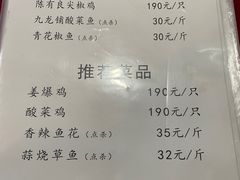 陈有良尖椒鸡 190元/只
九龙镇酸菜鱼(点杀) 30元/斤
青花椒鱼(点杀) 30元/斤
推荐菜品
姜爆鸡 190元/只
酸菜鸡 190元/只
香辣鱼花(点杀) 35元/斤
蒜烧草鱼(点杀) 32元/斤